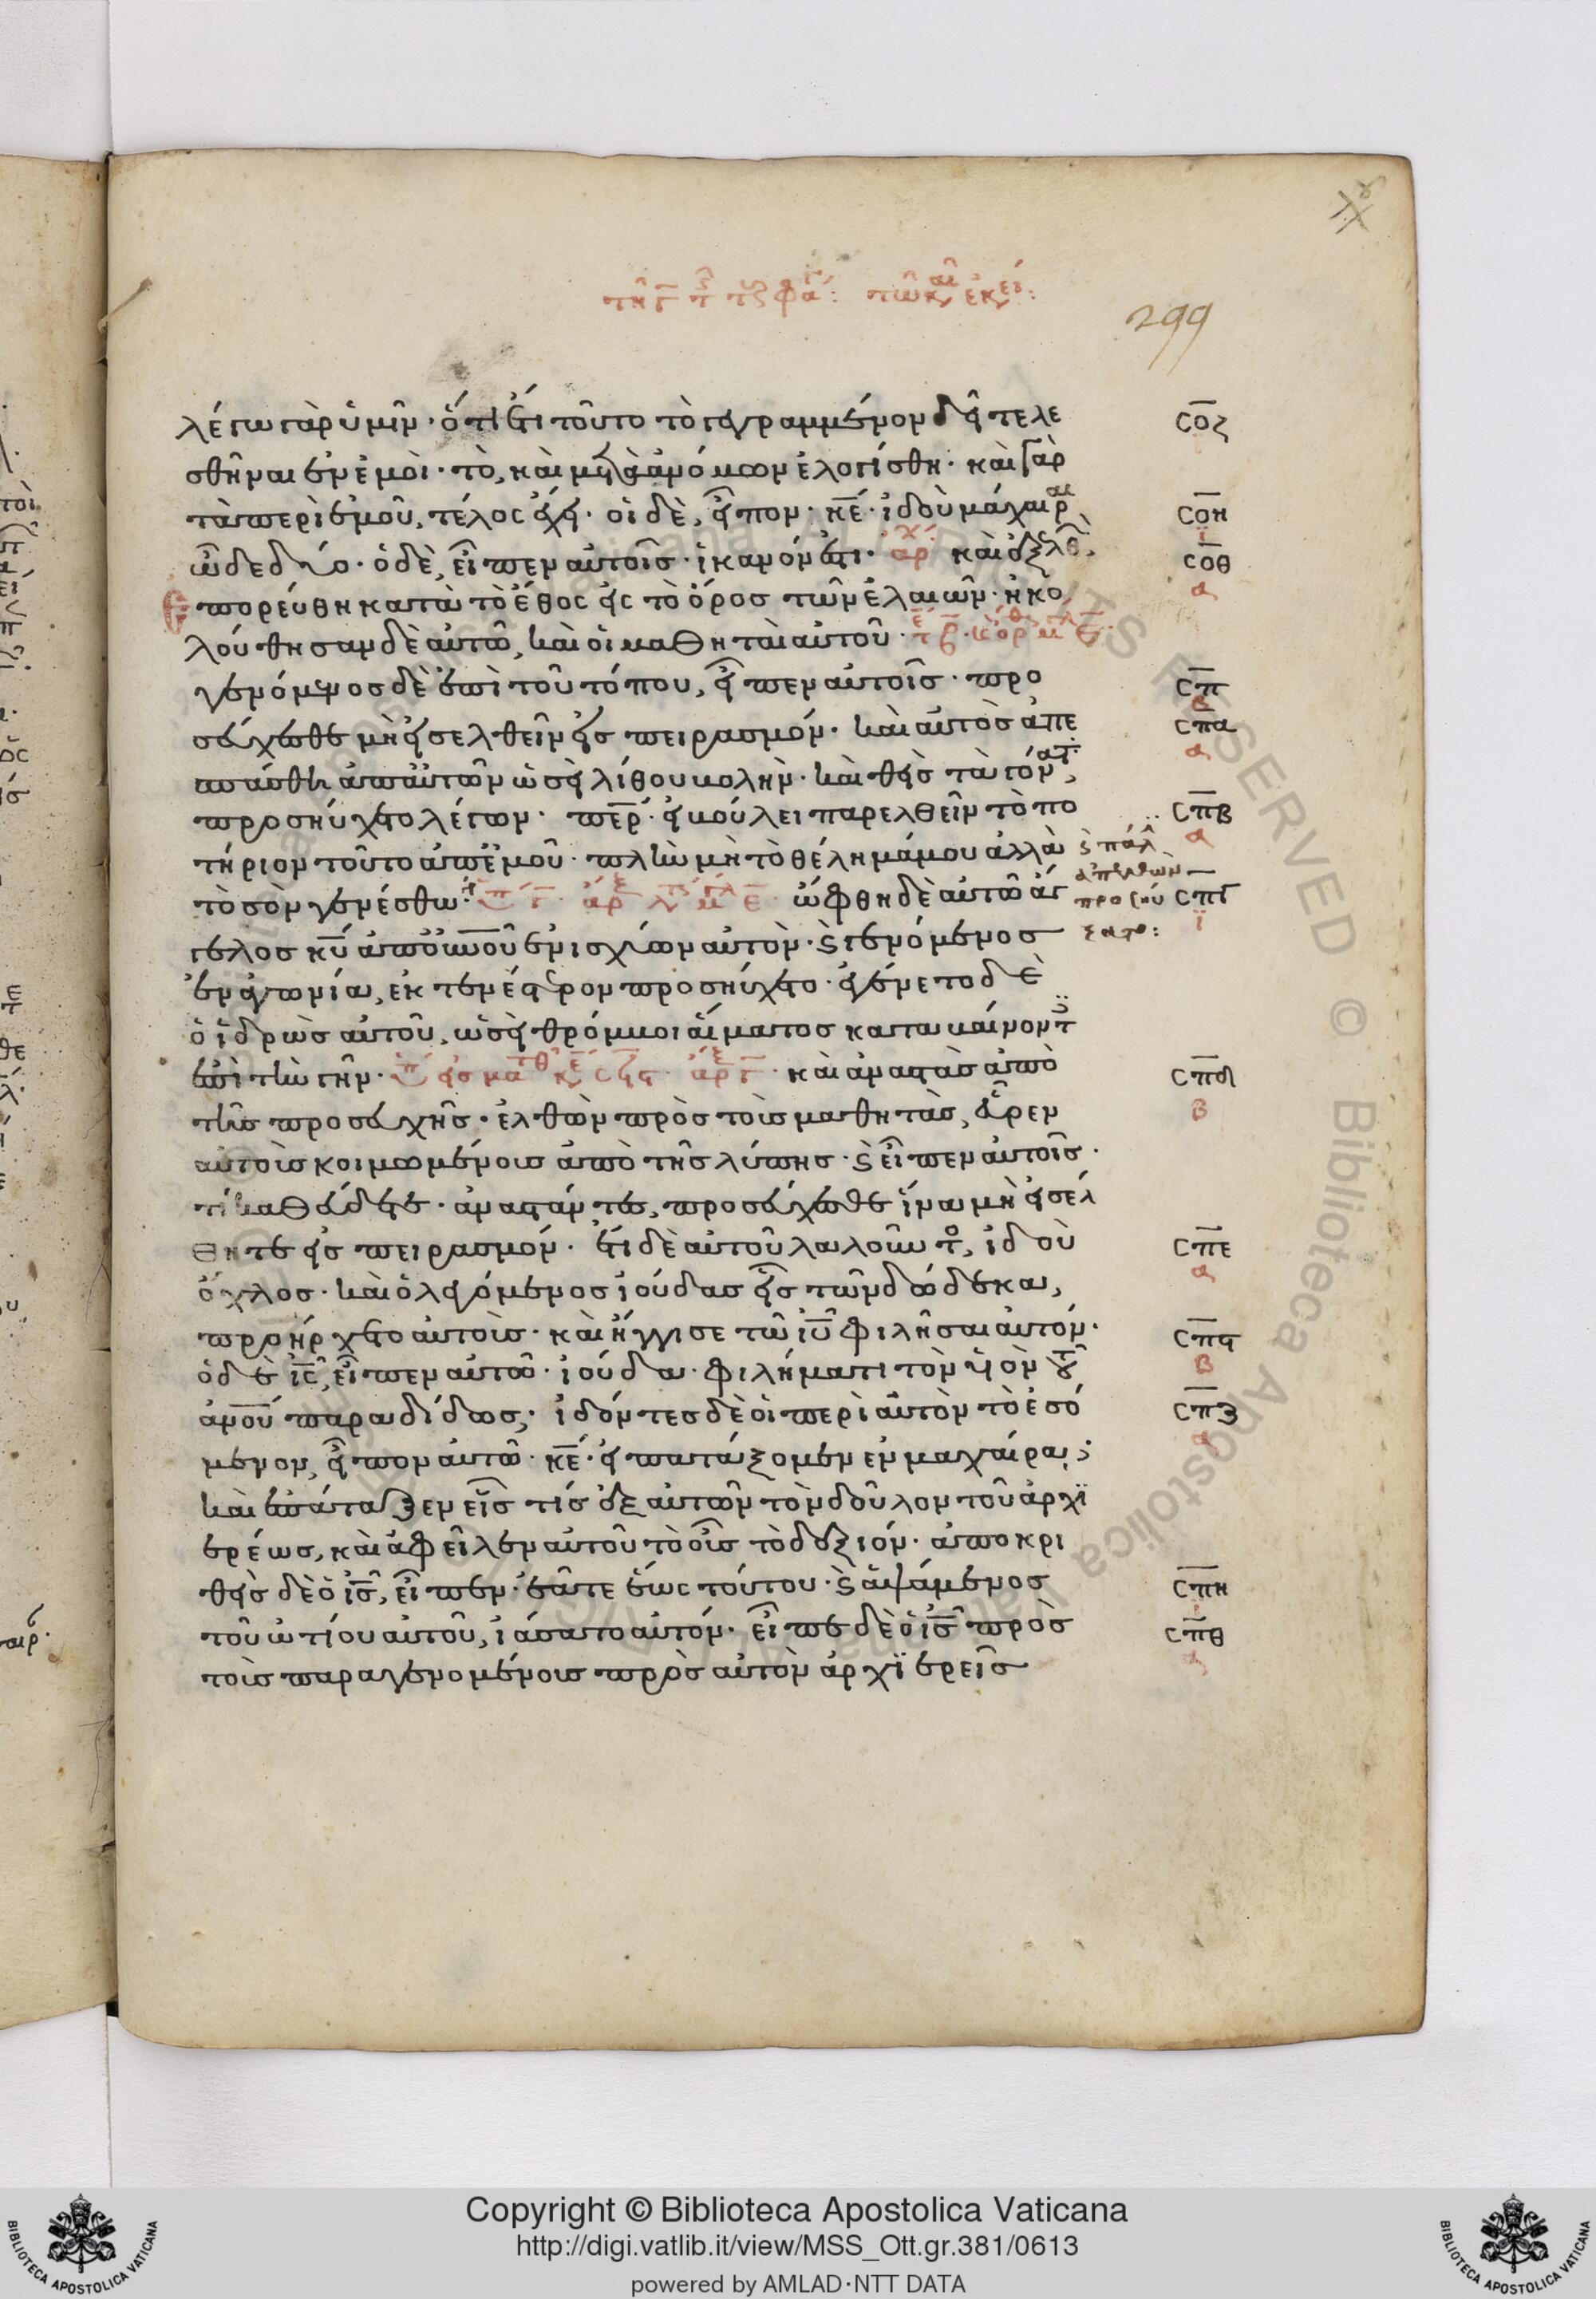 299
λέγω γὰρ ὑμῖν· ὅτι ἔτι τοῦτο τὸ γεγραμμένον δεῖ τελε
σθῆναι ἐν ἐμοὶ· τὸ, καὶ μετὰ ἀνόμων ἐλογίσθη· καὶ γὰρ
τὰ περὶ ἐμοῦ, τέλος ἔχει· οἱ δὲ, εἶπον· κε· ἰδοὺ μάχαιραι
ὧδε δύο· ὁ δὲ, εἶπεν αὐτοῖς· ἱκανόν ἐστι· ἀρχ καὶ ἐξελθὼν
ἐπορεύθη κατὰ τὸ ἔθος εἰς τὸ ὄρος τῶν ἐλαιῶν· ἠκο
λούθησαν δὲ αὐτῶ, καὶ οἱ μαθηταὶ αὐτοῦ·
γενόμενος δὲ ἐπὶ τοῦ τόπου, εἶπεν αὐτοῖς· προ
σεύχεσθε μὴ εἰσελθεῖν εἰς πειρασμόν· καὶ αὐτὸς ἀπε
σπάσθη ἀπ' αὐτῶν ὡσεὶ λίθου βολὴν· καὶ θεὶς τὰ γόνατ,
προσηύχετο λέγων· περ· εἰ βούλει παρελθεῖν τὸ πο
τήριον τοῦτο ἀπ' ἐμοῦ· πλὴν μὴ τὸ θέλημά μου ἀλλὰ
τὸ σὸν γενέσθω· ὤφθη δὲ αὐτῶ ἄγ
γελος κυ ἀπ' οὐνοῦ ἐνισχύων αὐτὸν· ϗ γενόμενος
ἐν ἀγωνία, ἐκτενέστερον προσηύχετο· ἐγένετο δὲ
ὁ ἱδρὼς αὐτοῦ, ὡσεὶ θρόμβοι αἵματος καταβαίνοντ
ἐπὶ τὴν γῆν· καὶ ἀναστὰς ἀπὸ
τῆς προσευχῆς· ἐλθὼν πρὸς τοὺς μαθητὰς, εὗρεν
αὐτοὺς κοιμωμένους ἀπὸ τῆς λύπης· ϗ εἶπεν αὐτοῖς·
τί καθεύδετε· ἀναστάντες, προσεύχεσθε ἵνα μὴ εἰσέλ
θητε εἰς πειρασμόν· ἔτι δὲ αὐτοῦ λαλοῦντο, ἰδοὺ
ὄχλος· καὶ ὁ λεγόμενος ἰούδας εἷς τῶν δώδεκα,
προήρχετο αὐτοὺς· καὶ ἤγγισε τῶ ιυ φιλῆσαι αὐτόν·
ὁ δὲ ις, εἶπεν αὐτῶ· ἰούδα· φιλήματι τὸν υἱὸν τοῦ
ανου παραδίδως; ἰδόντες δὲ οἱ περὶ αὐτὸν τὸ ἐσό
μενον, εἶπον αὐτῶ· κε· εἰ πατάξομεν ἐν μαχαίρα;
καὶ ἐπάταξεν εἷς τίς ἐξ αὐτῶν τὸν δοῦλον τοῦ ἀρχϊ
ερέως, καὶ ἀφεῖλεν αὐτοῦ τὸ οὖς τὸ δεξιόν· ἀποκρι
θεὶς δὲ ὁ ις, εἶπεν· ἐᾶτε ἕως τούτου· ϗ ἁψάμενος
τοῦ ὠτίου αὐτοῦ, ἰάσατο αὐτόν· εἶπε δὲ ὁ ις πρὸς
τοὺς παραγενομένους πρὸς αὐτὸν ἀρχϊερεῖς
ϗ πάλ
ἀπελθὼν
προσηύ
ξατο:
σοζ
σοη
σοθ
α
σπ
β
σπα
α
σπβ
α
σπγ
ϊ
σπδ
β
σπε
α
σπϛ
β
σπζ
α
σπη
σπθ
Copyright © Biblioteca Apostolica Vaticana
http://digi.vatlib.it/view/MSS_Ott.gr.381/0613
powered by AMLAD·NTT DATA
BIBLIOTECA APOSTOLICA VATICANA
BIBLIOTECA APOSTOLICA VATICANA